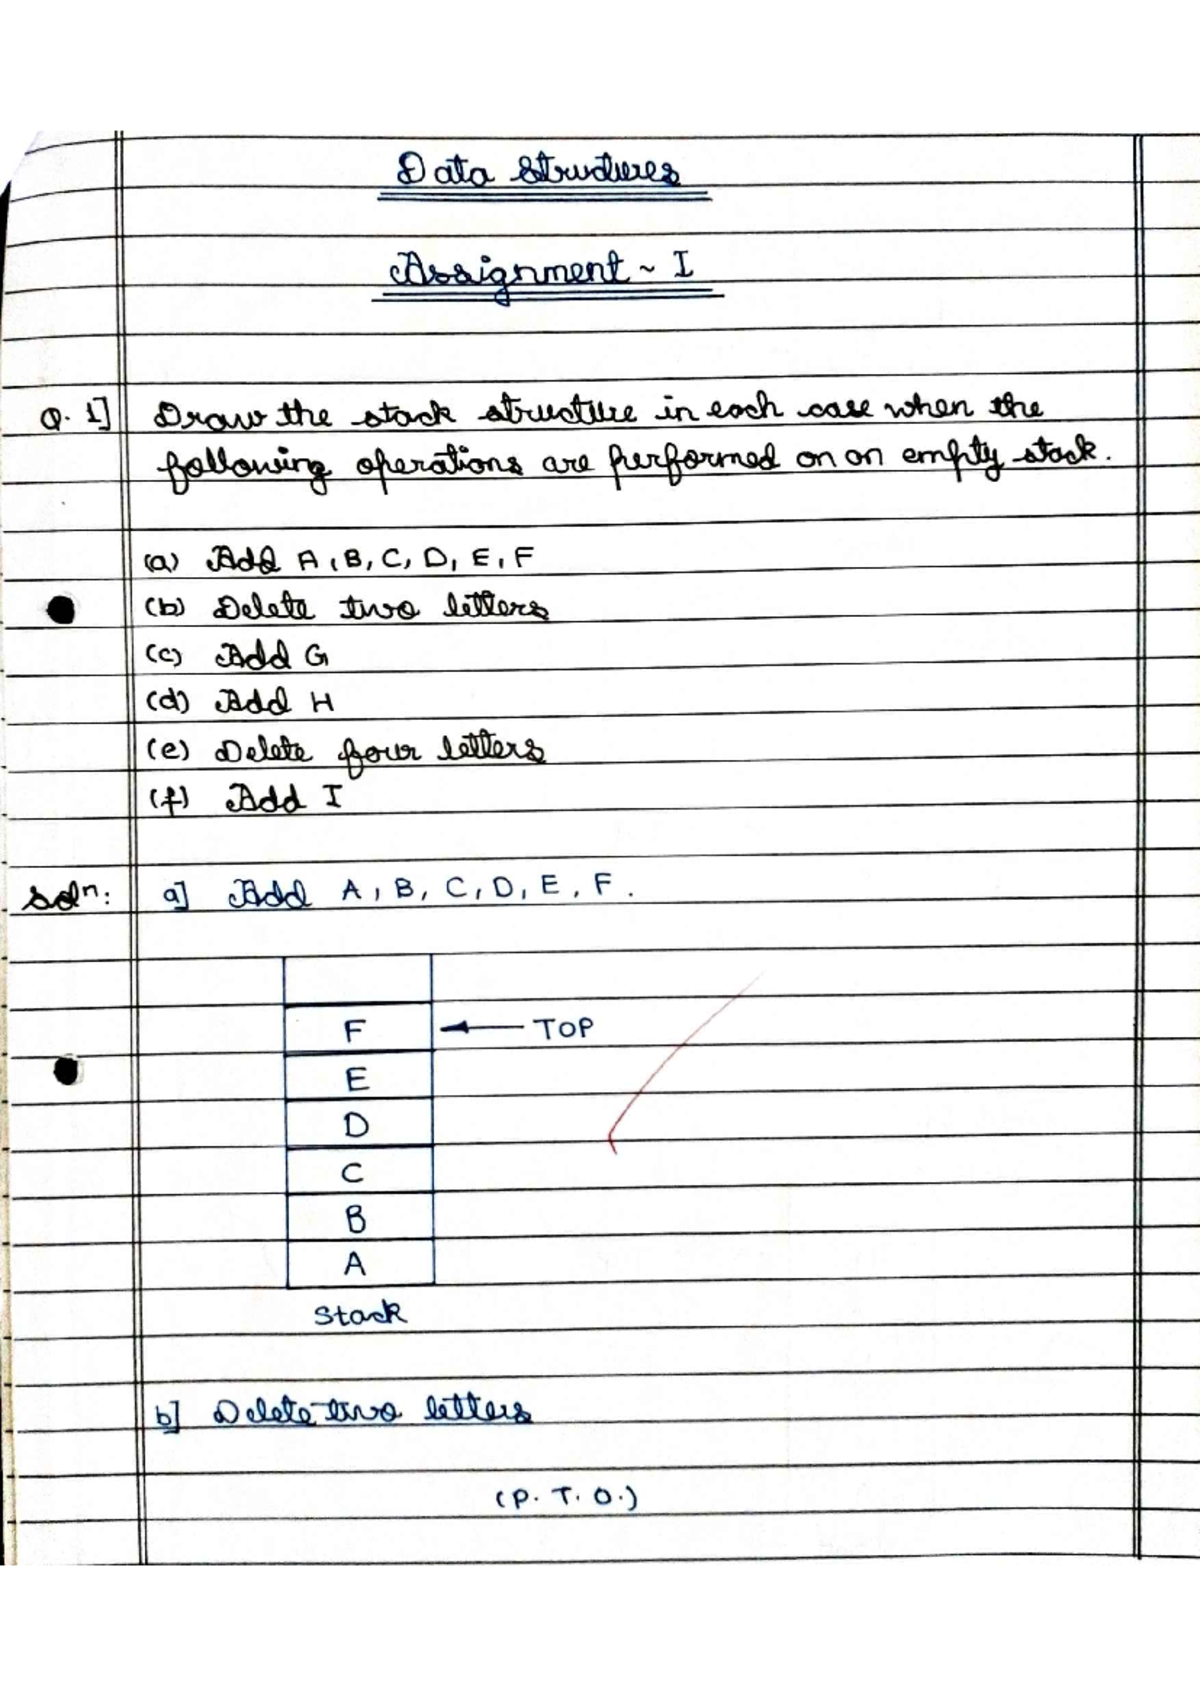 Data Structures
Assignment ~ I
Q. 1] Draw the stack structure in each case when the
following operations are performed on an empty stack.
(a) Add A, B, C, D, E, F
(b) Delete two letters
(c) Add G
(d) Add H
(e) Delete four letters
(f) Add I
Solⁿ: a] Add A, B, C, D, E, F.
F ← TOP
E
D
C
B
A
Stack
b] Delete two letters
(P. T. O.)